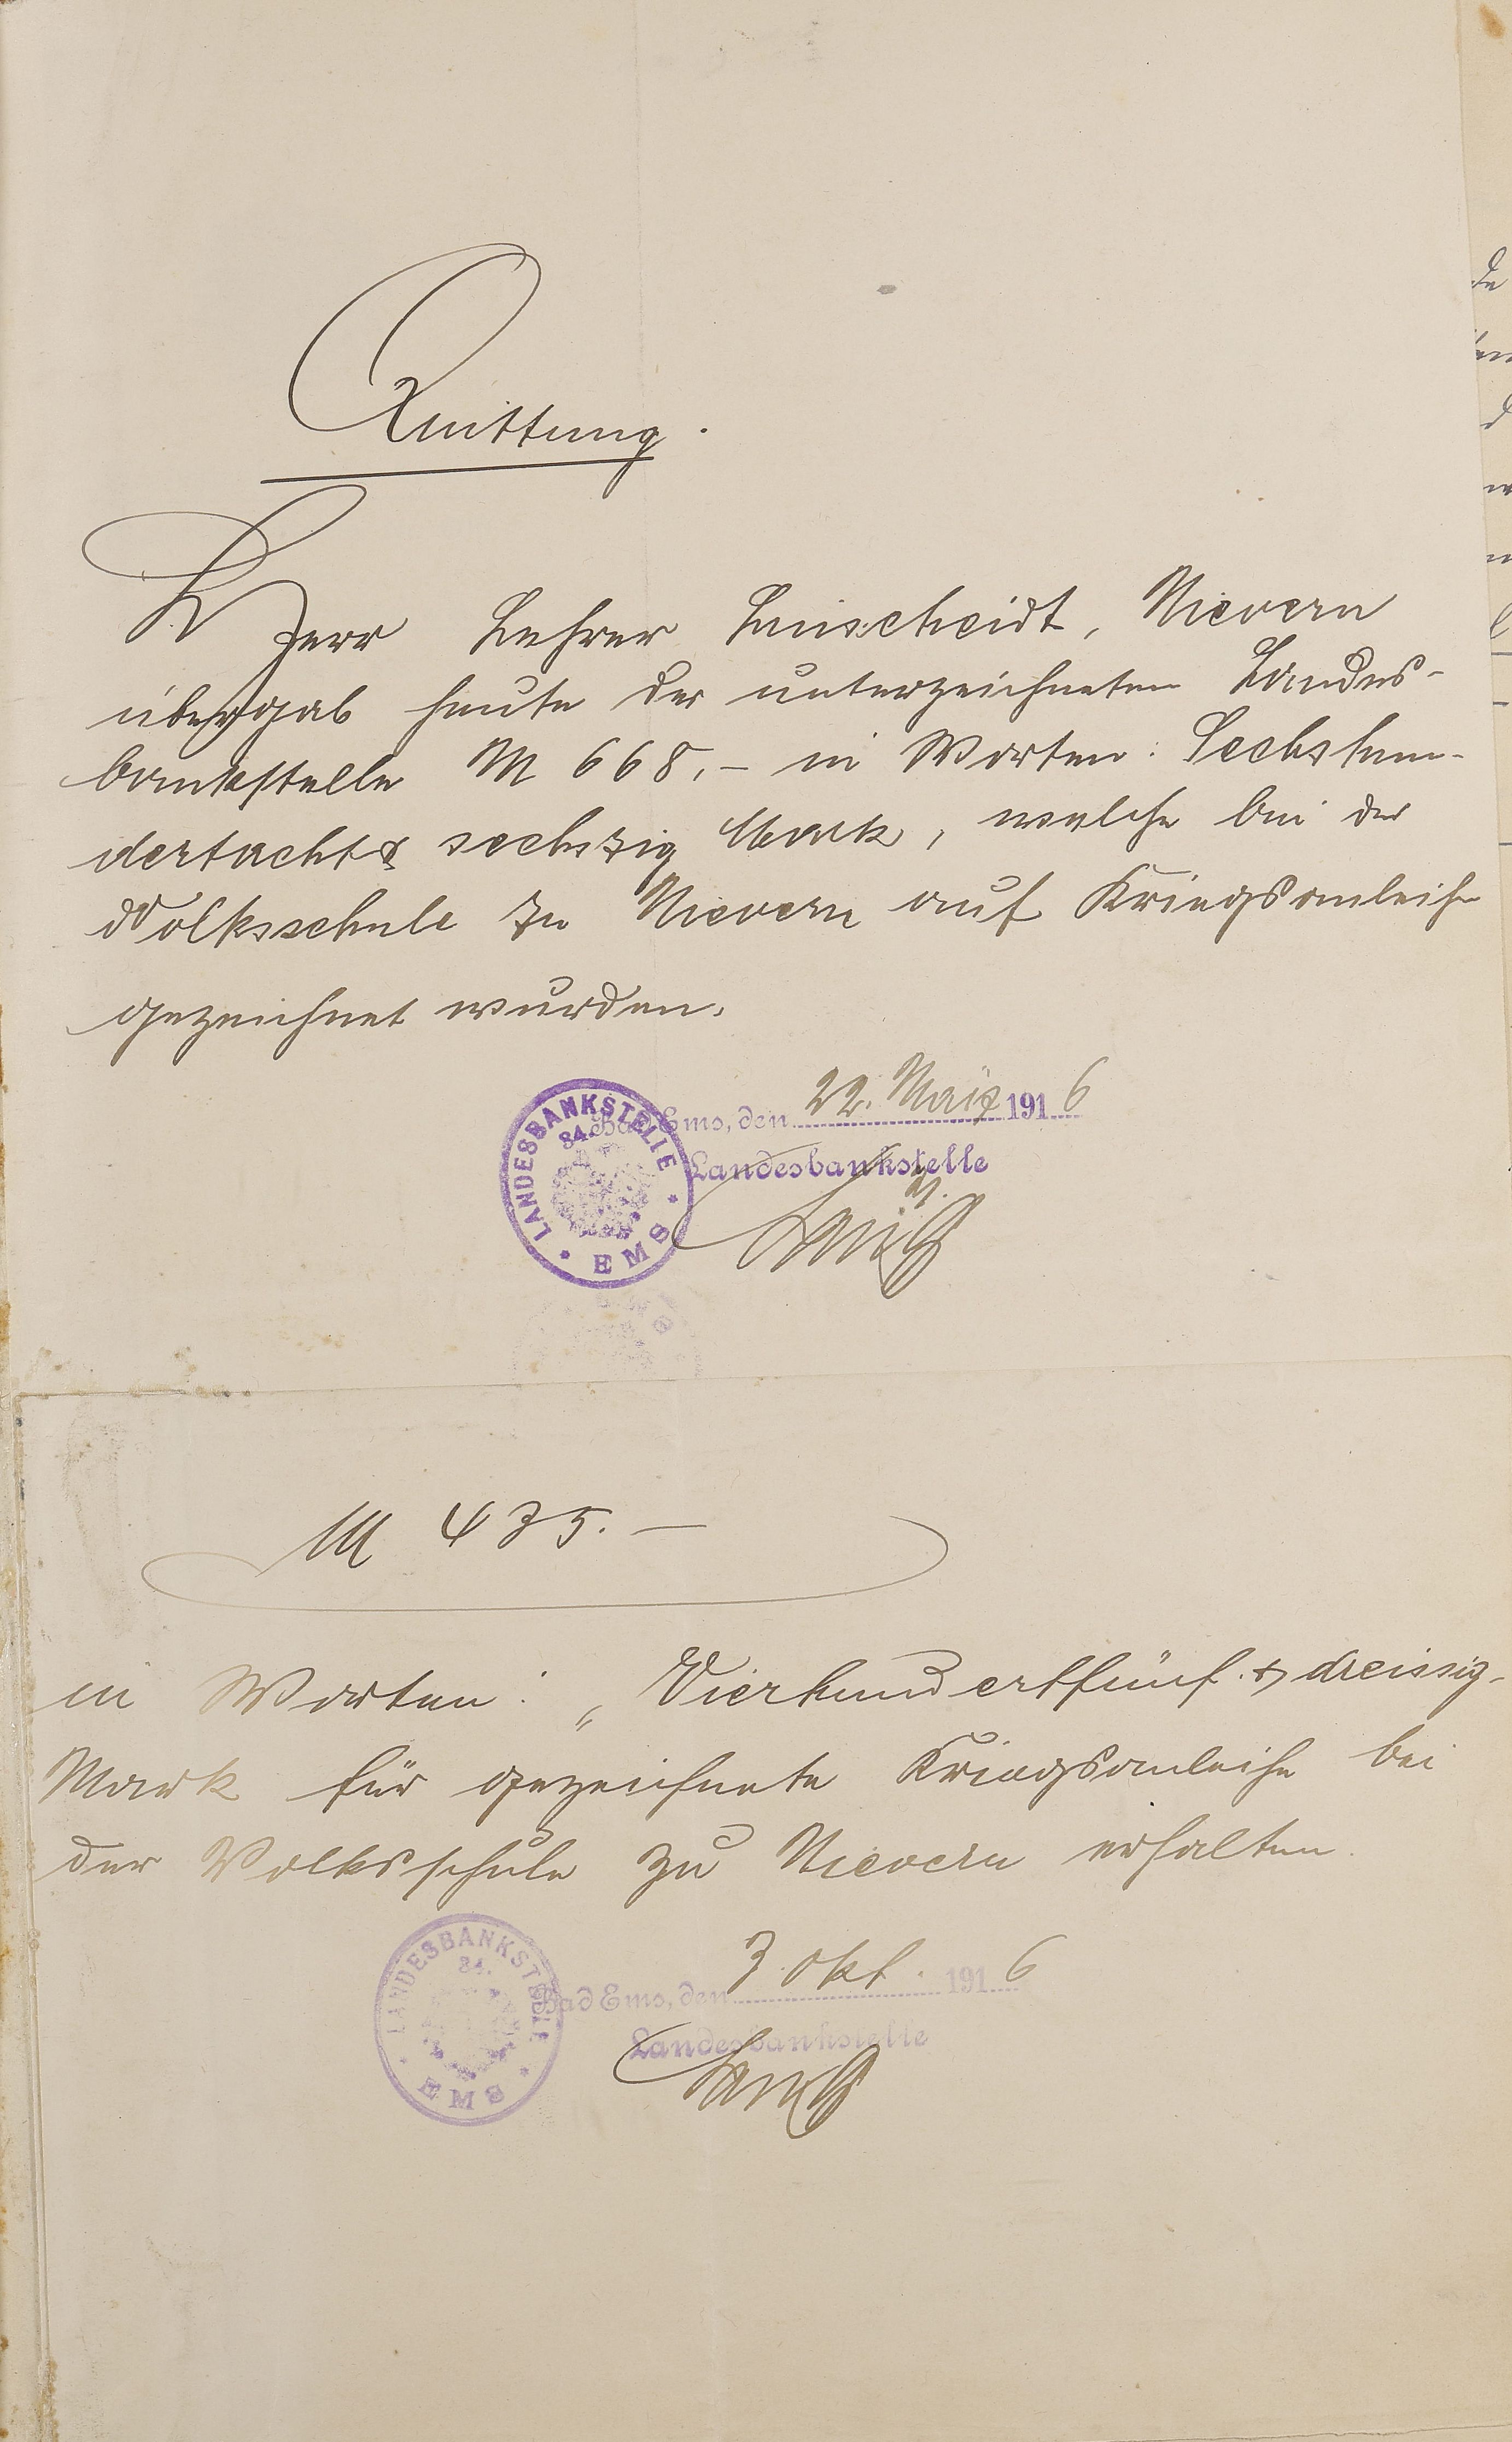 Quittung.
Herr Lehrer Linscheidt, Nievern
übergab heute der unterzeichneten Landes-
bankstelle M 668,- in Worten: Sechshun-
dertacht & sechszig Mark, welche bei der
Volksschule zu Nievern auf Kriegsanleihe
gezeichnet wurden.
Bad Ems, den 22. März 1916
Landesbankstelle
LANDESBANKSTELLE
84.
* EMS *
M 435.-
in Worten: „Vierhundertfünf & dreissig-
Mark für gezeichnete Kriegsanleihe bei
der Volksschule zu Nievern erhalten.
Bad Ems, den 3. Okt. 1916
Landesbankstelle
LANDESBANKSTELLE
84.
* EMS *